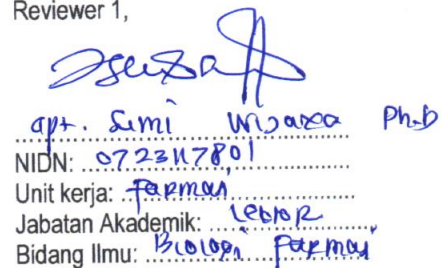 Reviewer 1,
apt. Susi Wijaya Ph.D
NIDN: 0723117801
Unit kerja: Farmasi
Jabatan Akademik: Lektor
Bidang Ilmu: Biologi Farmasi